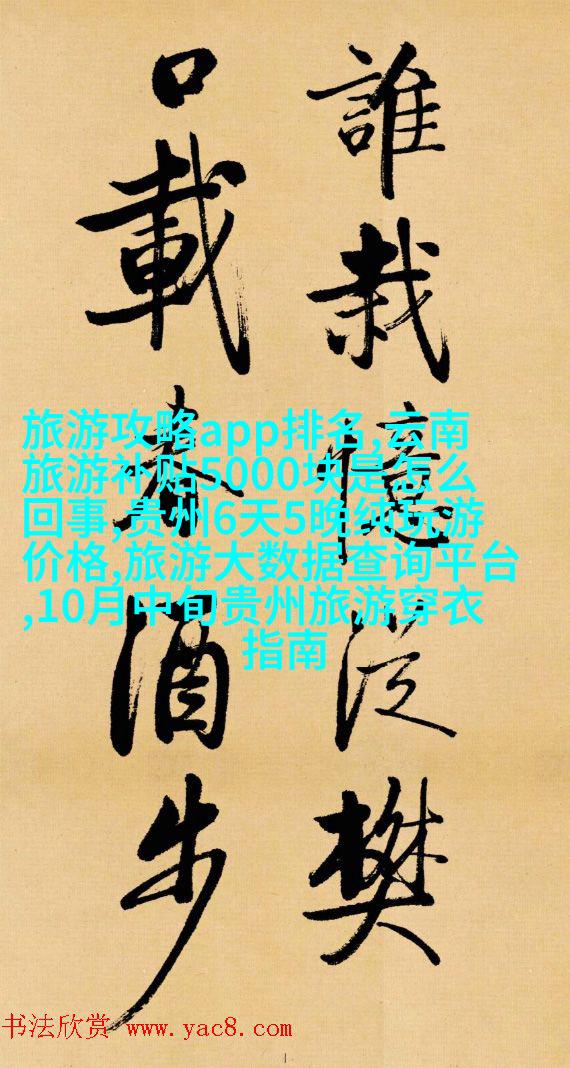 誰栽憶從樊
口載春酒步
旅游攻略app排名,云南
旅游补贴5000块是怎么
回事,贵州6天5晚纯玩游
价格,旅游大数据查询平台
,10月中旬贵州旅游穿衣
指南
书法欣赏 www.yac8.com